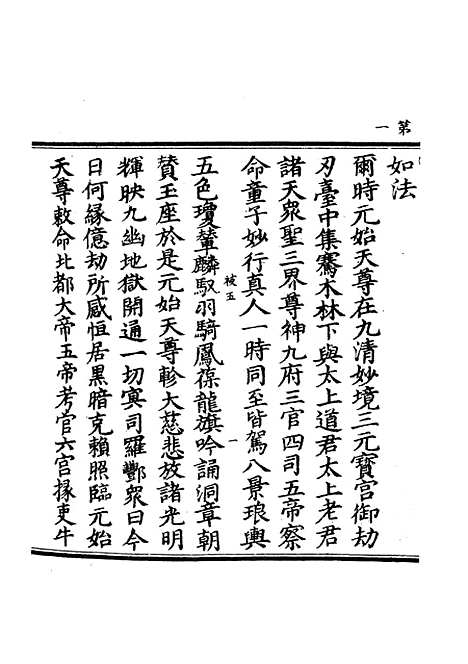 第一
如法
爾時元始天尊在九清妙境三元寶宮御劫
刃臺中集騫木林下與太上道君太上老君
諸天眾聖三界尊神九府三官四司五帝察
命童子妙行真人一時同至皆駕八景琅輿
棱五
一
五色瓊輦麟馭羽騎鳳葆龍旗吟誦洞章朝
贊玉座於是元始天尊軫大慈悲放諸光明
輝映九幽地獄開通一切冥司羅酆眾曰今
日何緣億劫所感恒居黑暗克賴照臨元始
天尊敕命北都大帝五帝考官六宮掾吏牛